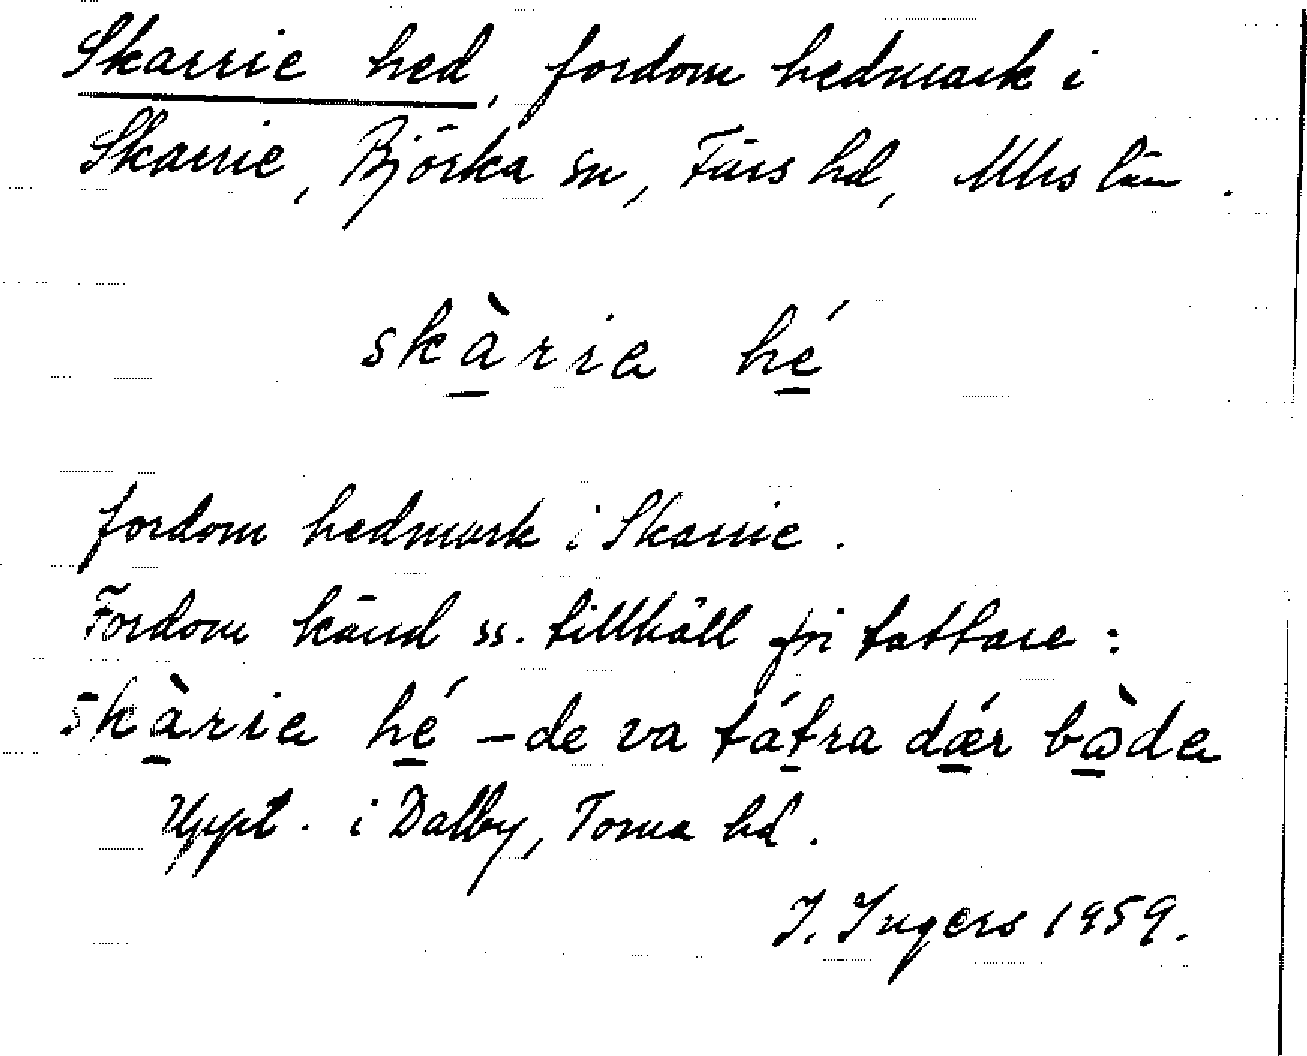 Skarrie hed, fordom hedmark i
Skarrie, Björka sn, Färs hd, Mhs län.
skària hé
fordom hedmark i Skarrie.
Fordom känd ss. tillhåll för tattare:
skària hé – de va tátra dǽr bòda
Uppt. i Dalby, Torna hd.
I. Ingers 1959.